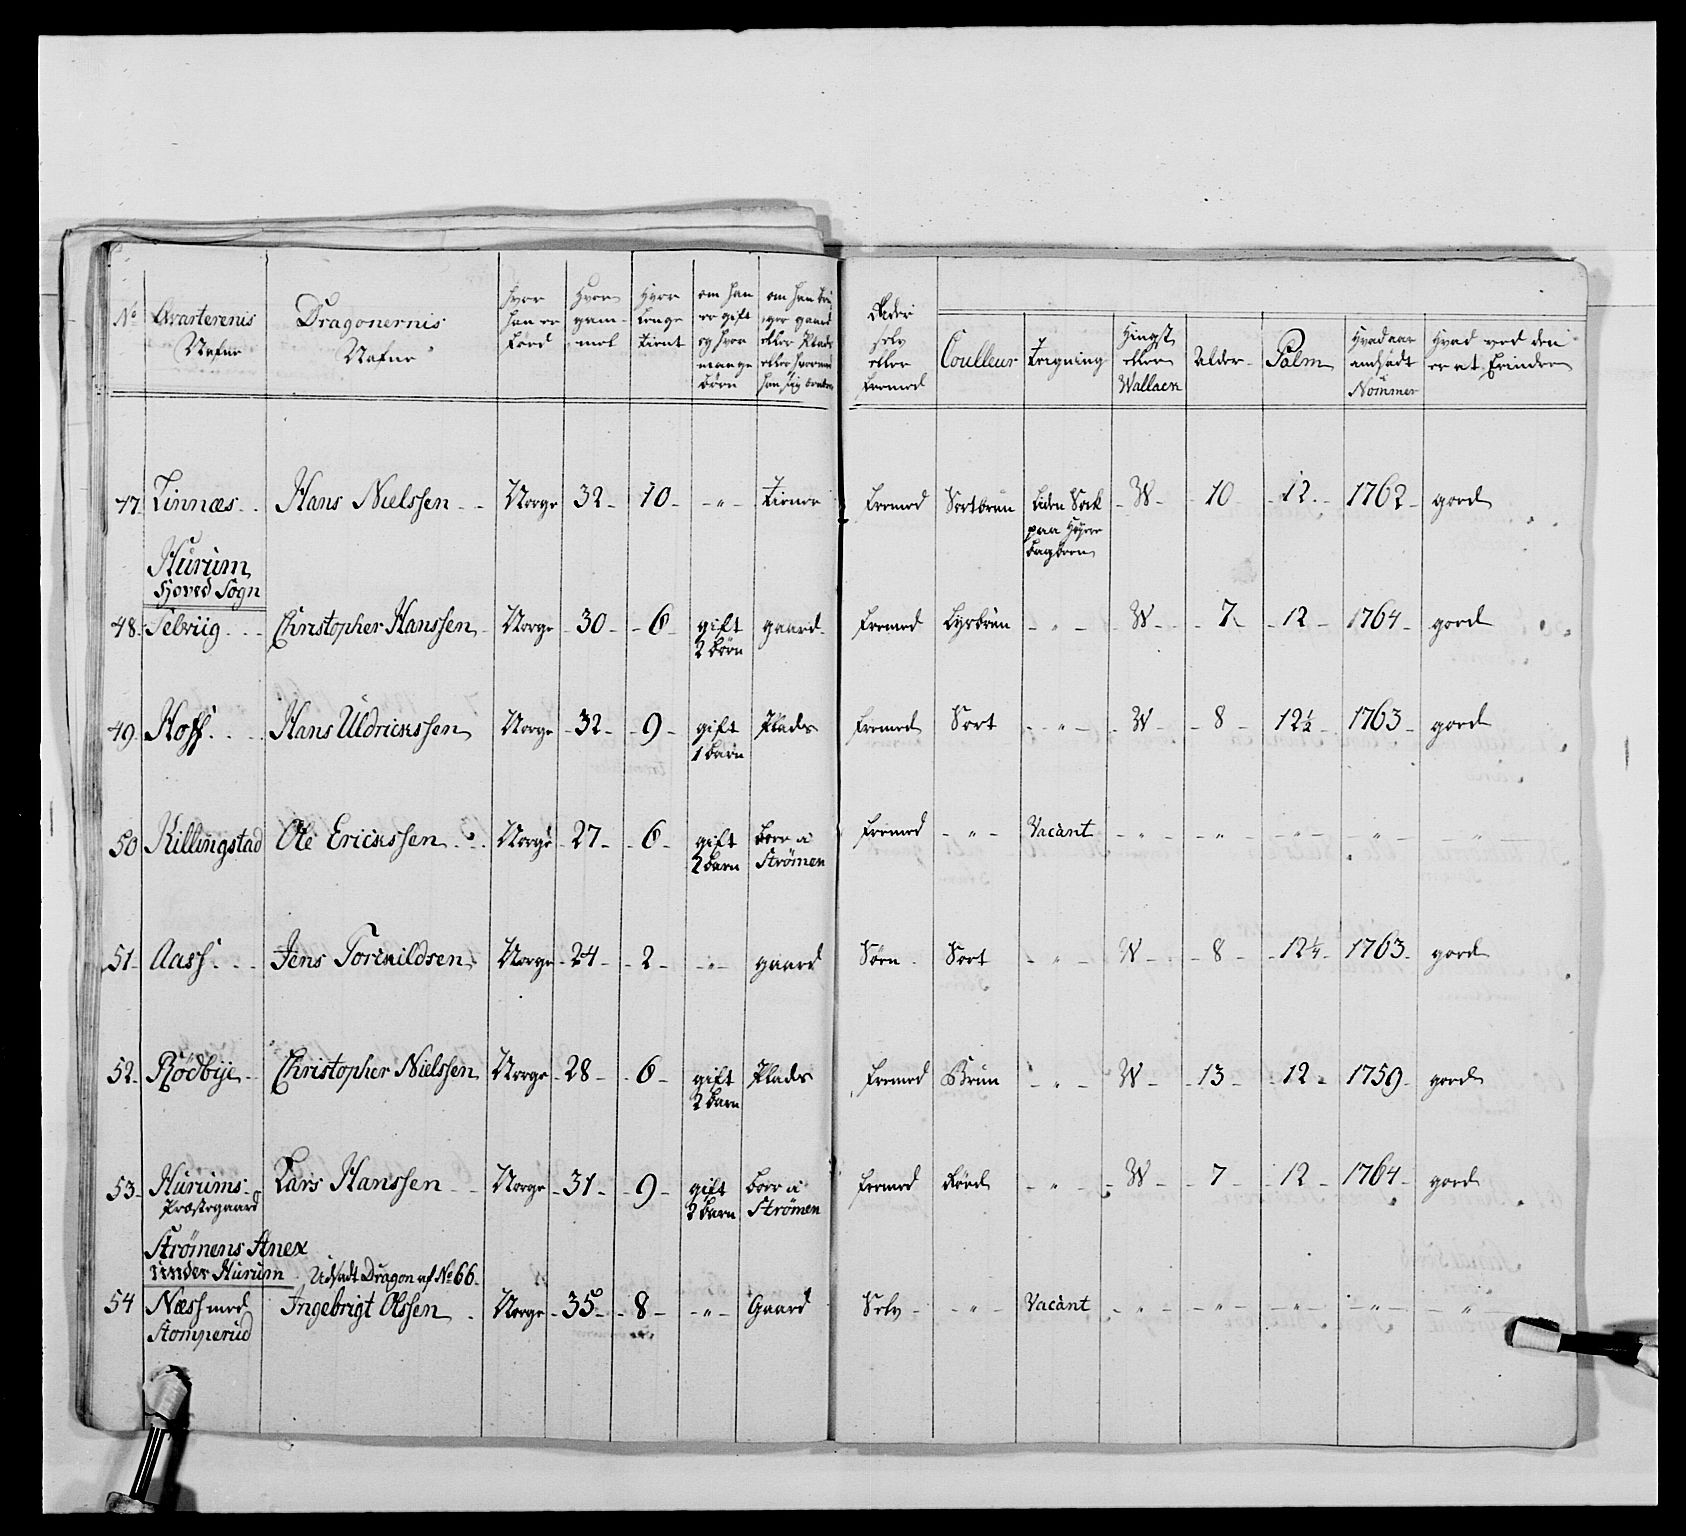 No Qvarterenis Nafne Dragonernis Nafne hvor han er föed Hvor gam- mel Hvor Lenge tient om han er gift og hvor mange börn om han bru- ger gaard eller Plads eller hvormed han sig
Rider selv eller fremed Coulleur Teigning Hingst eller Wallack Alder Palm Hvad aar andsadt Nommer Hvad ved den er at Erindre
47. Linnæs Hans Nielssen Norge 32 10 " tiener fremed Sortbrun Liden Sock paa Höyre bagbeen W 10 12 1762 goed
Hurum
Hoved Sogn
48. Selviig Christopher Hanssen Norge 30 6 gift 2 börn gaard fremed Lysbrun " W 7 12 1764 goed
49. Hoff Hans Uldrickssen Norge 32 9 gift 1 barn Plads fremed Sort " W 8 12½ 1763 goed
50 Killingstad Ole Erickssen Norge 27 6 gift 2 barn boer i Strömen fremed " Vacant " " " " "
51. Aass Jens Torkildsen Norge 24 2 " gaard Sörn Sort " W 8 12¼ 1763 goed
52. Rödbije Christopher Nielssen Norge 28 6 gift 2 barn Plads fremed Brun " W 13 12 1759 goed
53. Hurums Præstegaard Lars Hanssen Norge 31 9 gift 3 barn boer i Strömen fremed Röed " W 7 12 1764 goed
Strömens Anex
under Hurum Udsadt Dragon af No 66.
54 Næss med Stomperud Ingebrigt Olssen Norge 35 8 " Gaard Selv " Vacant " " " " "